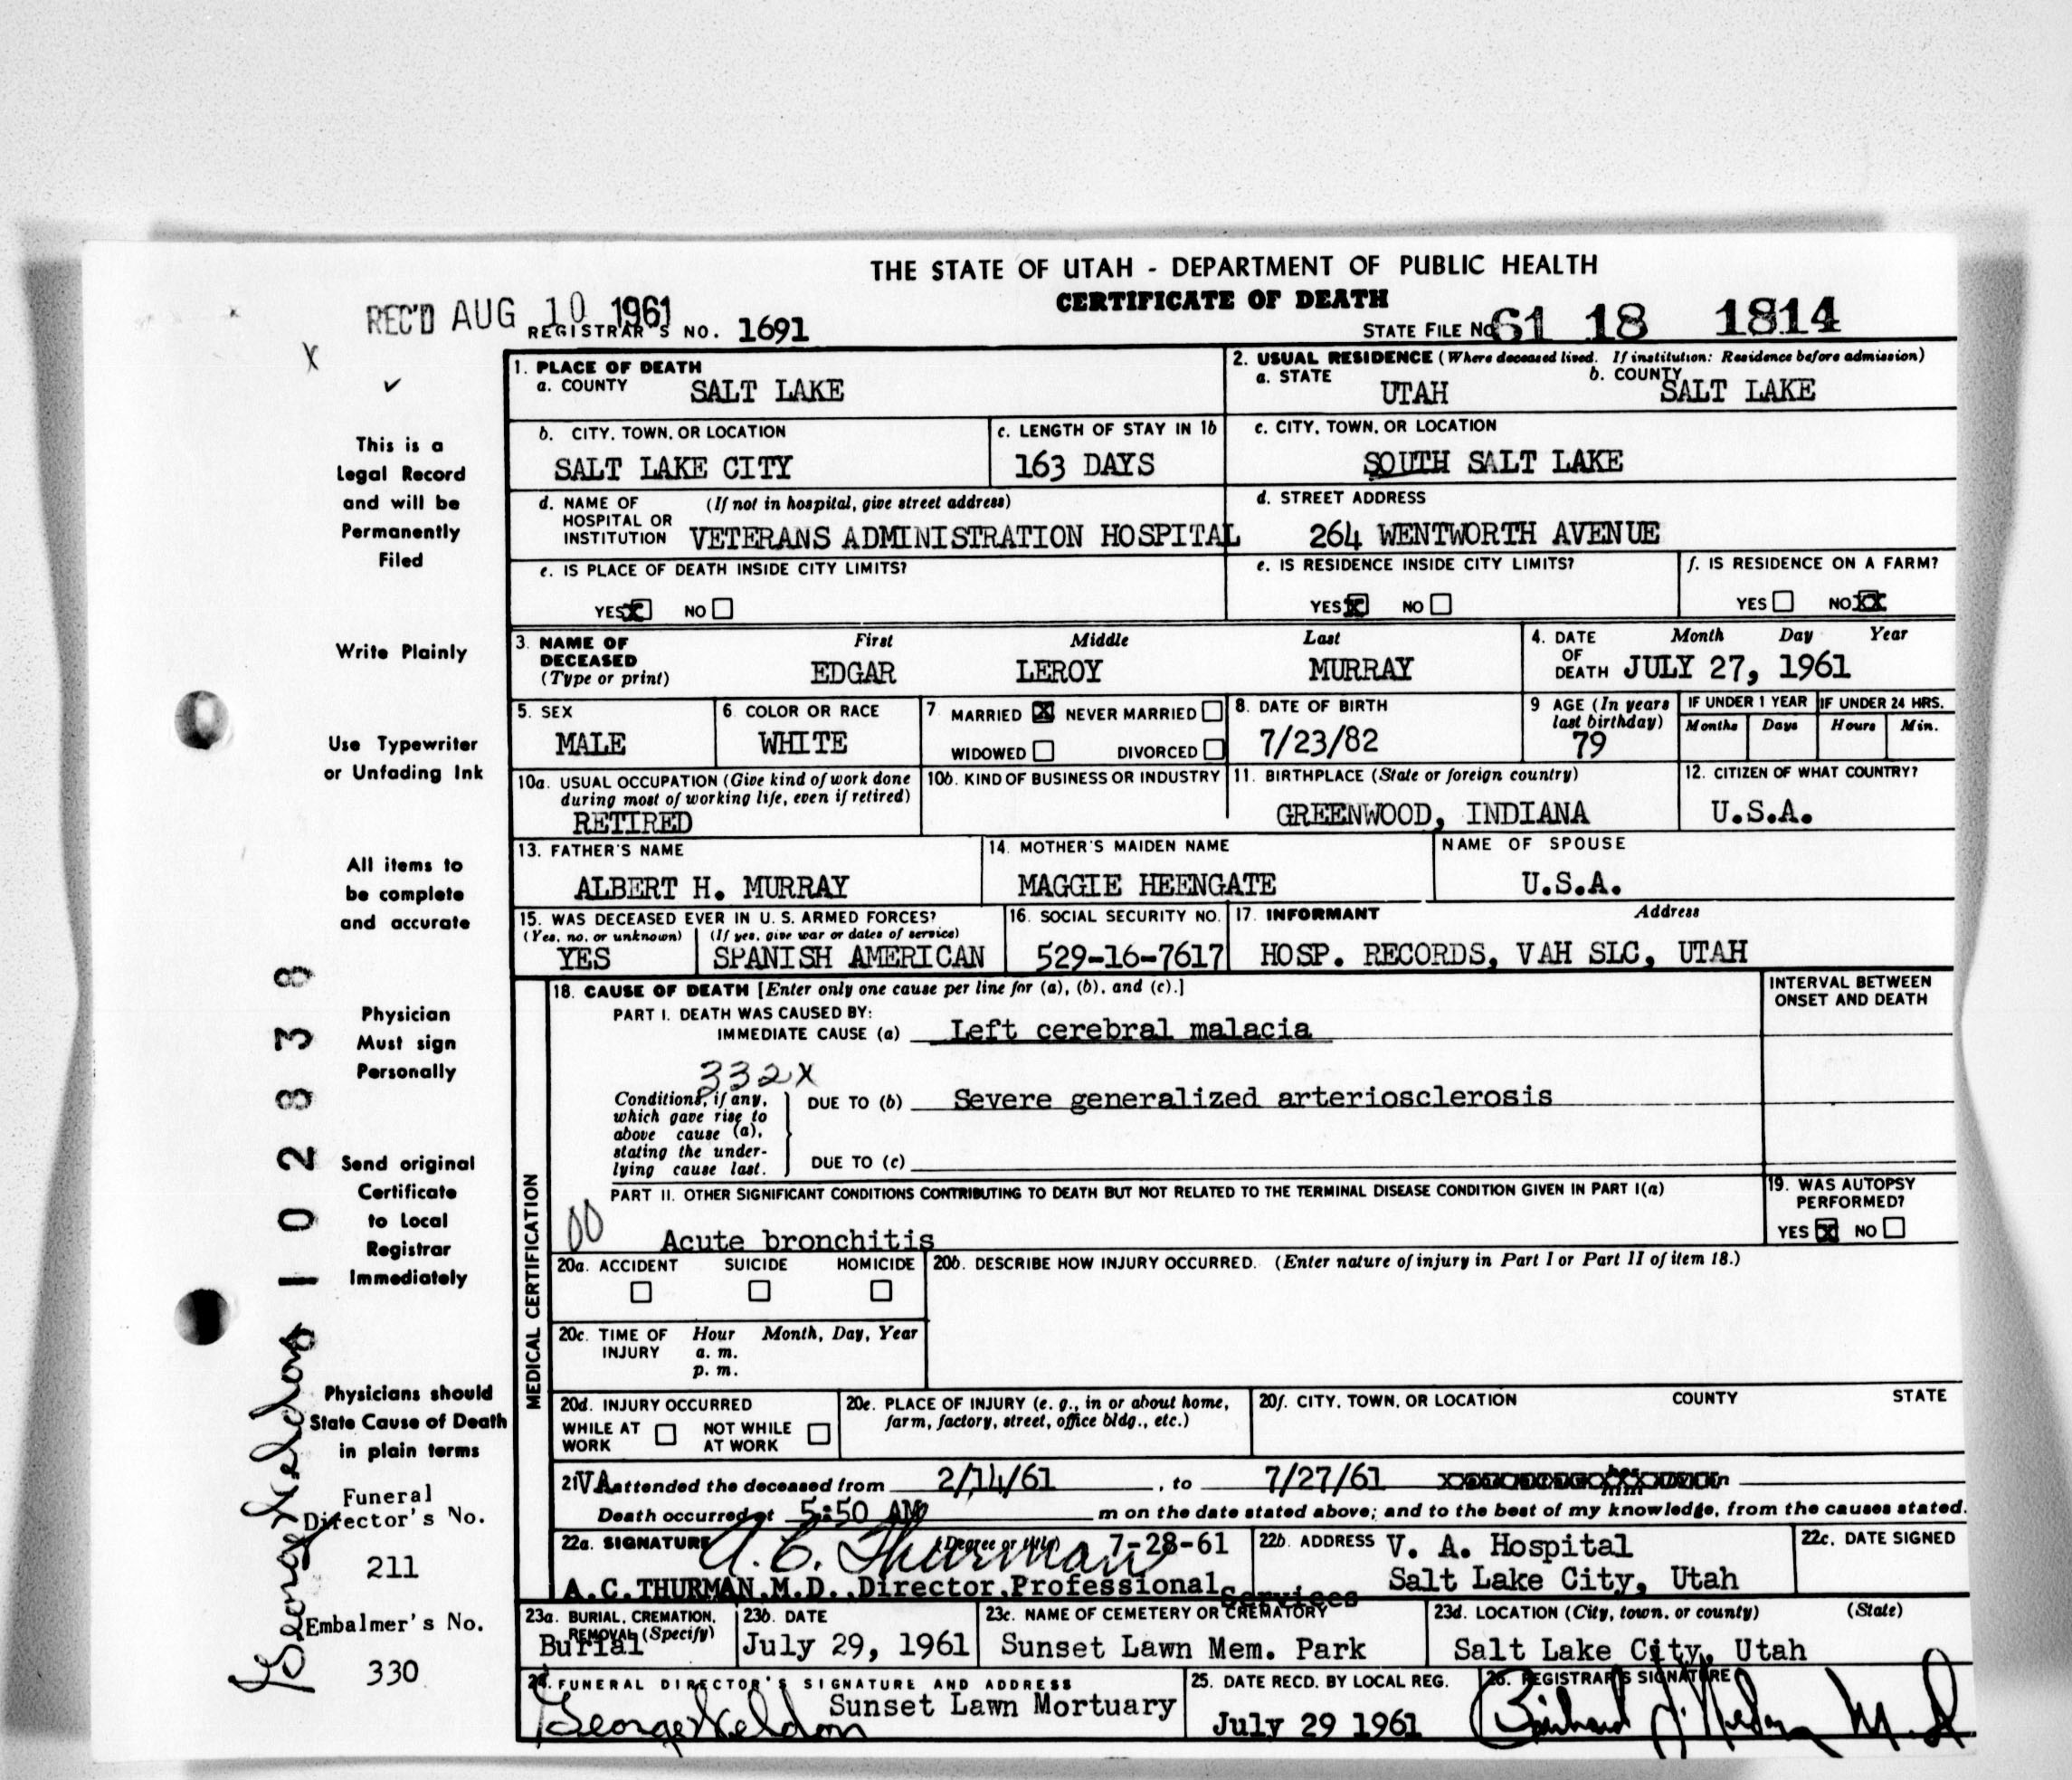 THE STATE OF UTAH - DEPARTMENT OF PUBLIC HEALTH
CERTIFICATE OF DEATH
REC'D AUG 10 1961
REGISTRAR'S NO. 1691
STATE FILE NO. 61 18 1814
X
✓
This is a
Legal Record
and will be
Permanently
Filed
Write Plainly
Use Typewriter
or Unfading Ink
All items to
be complete
and accurate
Physician
Must sign
Personally
Send original
Certificate
to Local
Registrar
Immediately
Physicians should
State Cause of Death
in plain terms
Funeral
Director's No.
211
Embalmer's No.
330
George Weldon 1 0 2 8 3 8
1. PLACE OF DEATH
a. COUNTY SALT LAKE
2. USUAL RESIDENCE (Where deceased lived. If institution: Residence before admission)
a. STATE UTAH b. COUNTY SALT LAKE
b. CITY, TOWN, OR LOCATION
SALT LAKE CITY
c. LENGTH OF STAY IN 1b
163 DAYS
c. CITY, TOWN, OR LOCATION
SOUTH SALT LAKE
d. NAME OF (If not in hospital, give street address)
HOSPITAL OR
INSTITUTION VETERANS ADMINISTRATION HOSPITAL
d. STREET ADDRESS
264 WENTWORTH AVENUE
e. IS PLACE OF DEATH INSIDE CITY LIMITS?
YES X NO
e. IS RESIDENCE INSIDE CITY LIMITS?
YES X NO
f. IS RESIDENCE ON A FARM?
YES NO XX
3. NAME OF First Middle Last
DECEASED
(Type or print) EDGAR LEROY MURRAY
4. DATE Month Day Year
OF
DEATH JULY 27, 1961
5. SEX
MALE
6. COLOR OR RACE
WHITE
7. MARRIED X NEVER MARRIED
WIDOWED DIVORCED
8. DATE OF BIRTH
7/23/82
9. AGE (In years
last birthday)
79
IF UNDER 1 YEAR
Months Days
IF UNDER 24 HRS.
Hours Min.
10a. USUAL OCCUPATION (Give kind of work done
during most of working life, even if retired)
RETIRED
10b. KIND OF BUSINESS OR INDUSTRY
11. BIRTHPLACE (State or foreign country)
GREENWOOD, INDIANA
12. CITIZEN OF WHAT COUNTRY?
U.S.A.
13. FATHER'S NAME
ALBERT H. MURRAY
14. MOTHER'S MAIDEN NAME
MAGGIE HEENGATE
NAME OF SPOUSE
U.S.A.
15. WAS DECEASED EVER IN U. S. ARMED FORCES?
(Yes, no, or unknown) (If yes, give war or dates of service)
YES SPANISH AMERICAN
16. SOCIAL SECURITY NO.
529-16-7617
17. INFORMANT Address
HOSP. RECORDS, VAH SLC, UTAH
MEDICAL CERTIFICATION
18. CAUSE OF DEATH [Enter only one cause per line for (a), (b), and (c).]
INTERVAL BETWEEN
ONSET AND DEATH
PART I. DEATH WAS CAUSED BY:
IMMEDIATE CAUSE (a) Left cerebral malacia
332X
Conditions, if any,
which gave rise to
above cause (a),
stating the under-
lying cause last.
DUE TO (b) Severe generalized arteriosclerosis
DUE TO (c)
PART II. OTHER SIGNIFICANT CONDITIONS CONTRIBUTING TO DEATH BUT NOT RELATED TO THE TERMINAL DISEASE CONDITION GIVEN IN PART I(a)
00
Acute bronchitis
19. WAS AUTOPSY
PERFORMED?
YES X NO
20a. ACCIDENT SUICIDE HOMICIDE
20b. DESCRIBE HOW INJURY OCCURRED. (Enter nature of injury in Part I or Part II of item 18.)
20c. TIME OF Hour Month, Day, Year
INJURY a. m.
p. m.
20d. INJURY OCCURRED
WHILE AT NOT WHILE
WORK AT WORK
20e. PLACE OF INJURY (e. g., in or about home,
farm, factory, street, office bldg., etc.)
20f. CITY, TOWN, OR LOCATION COUNTY STATE
21 VA attended the deceased from 2/14/61, to 7/27/61
Death occurred at 5:50 AM m on the date stated above; and to the best of my knowledge, from the causes stated.
22a. SIGNATURE A. C. Thurman (Degree or title) 7-28-61
A.C.THURMAN,M.D.,Director,Professional Services
22b. ADDRESS V. A. Hospital
Salt Lake City, Utah
22c. DATE SIGNED
23a. BURIAL, CREMATION,
REMOVAL (Specify)
Burial
23b. DATE
July 29, 1961
23c. NAME OF CEMETERY OR CREMATORY
Sunset Lawn Mem. Park
23d. LOCATION (City, town, or county) (State)
Salt Lake City, Utah
24. FUNERAL DIRECTOR'S SIGNATURE AND ADDRESS
George Weldon Sunset Lawn Mortuary
25. DATE RECD. BY LOCAL REG.
July 29 1961
26. REGISTRAR'S SIGNATURE